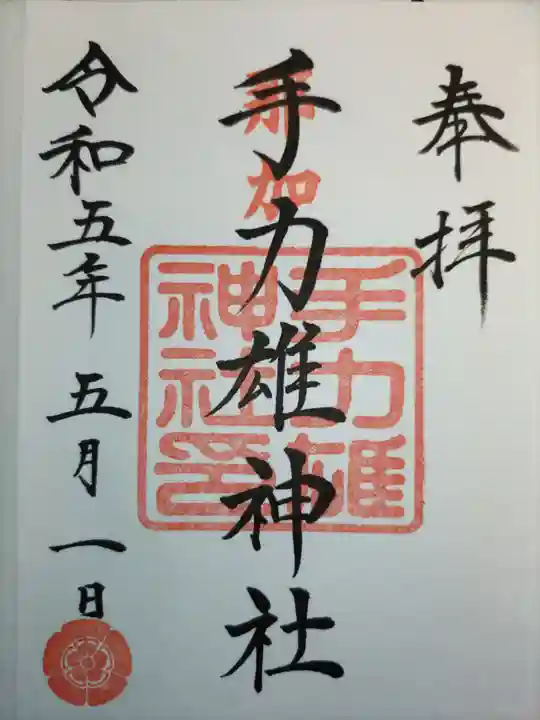 奉拝
那加
手力雄神社
手力雄神社印
令和五年 五月 一日